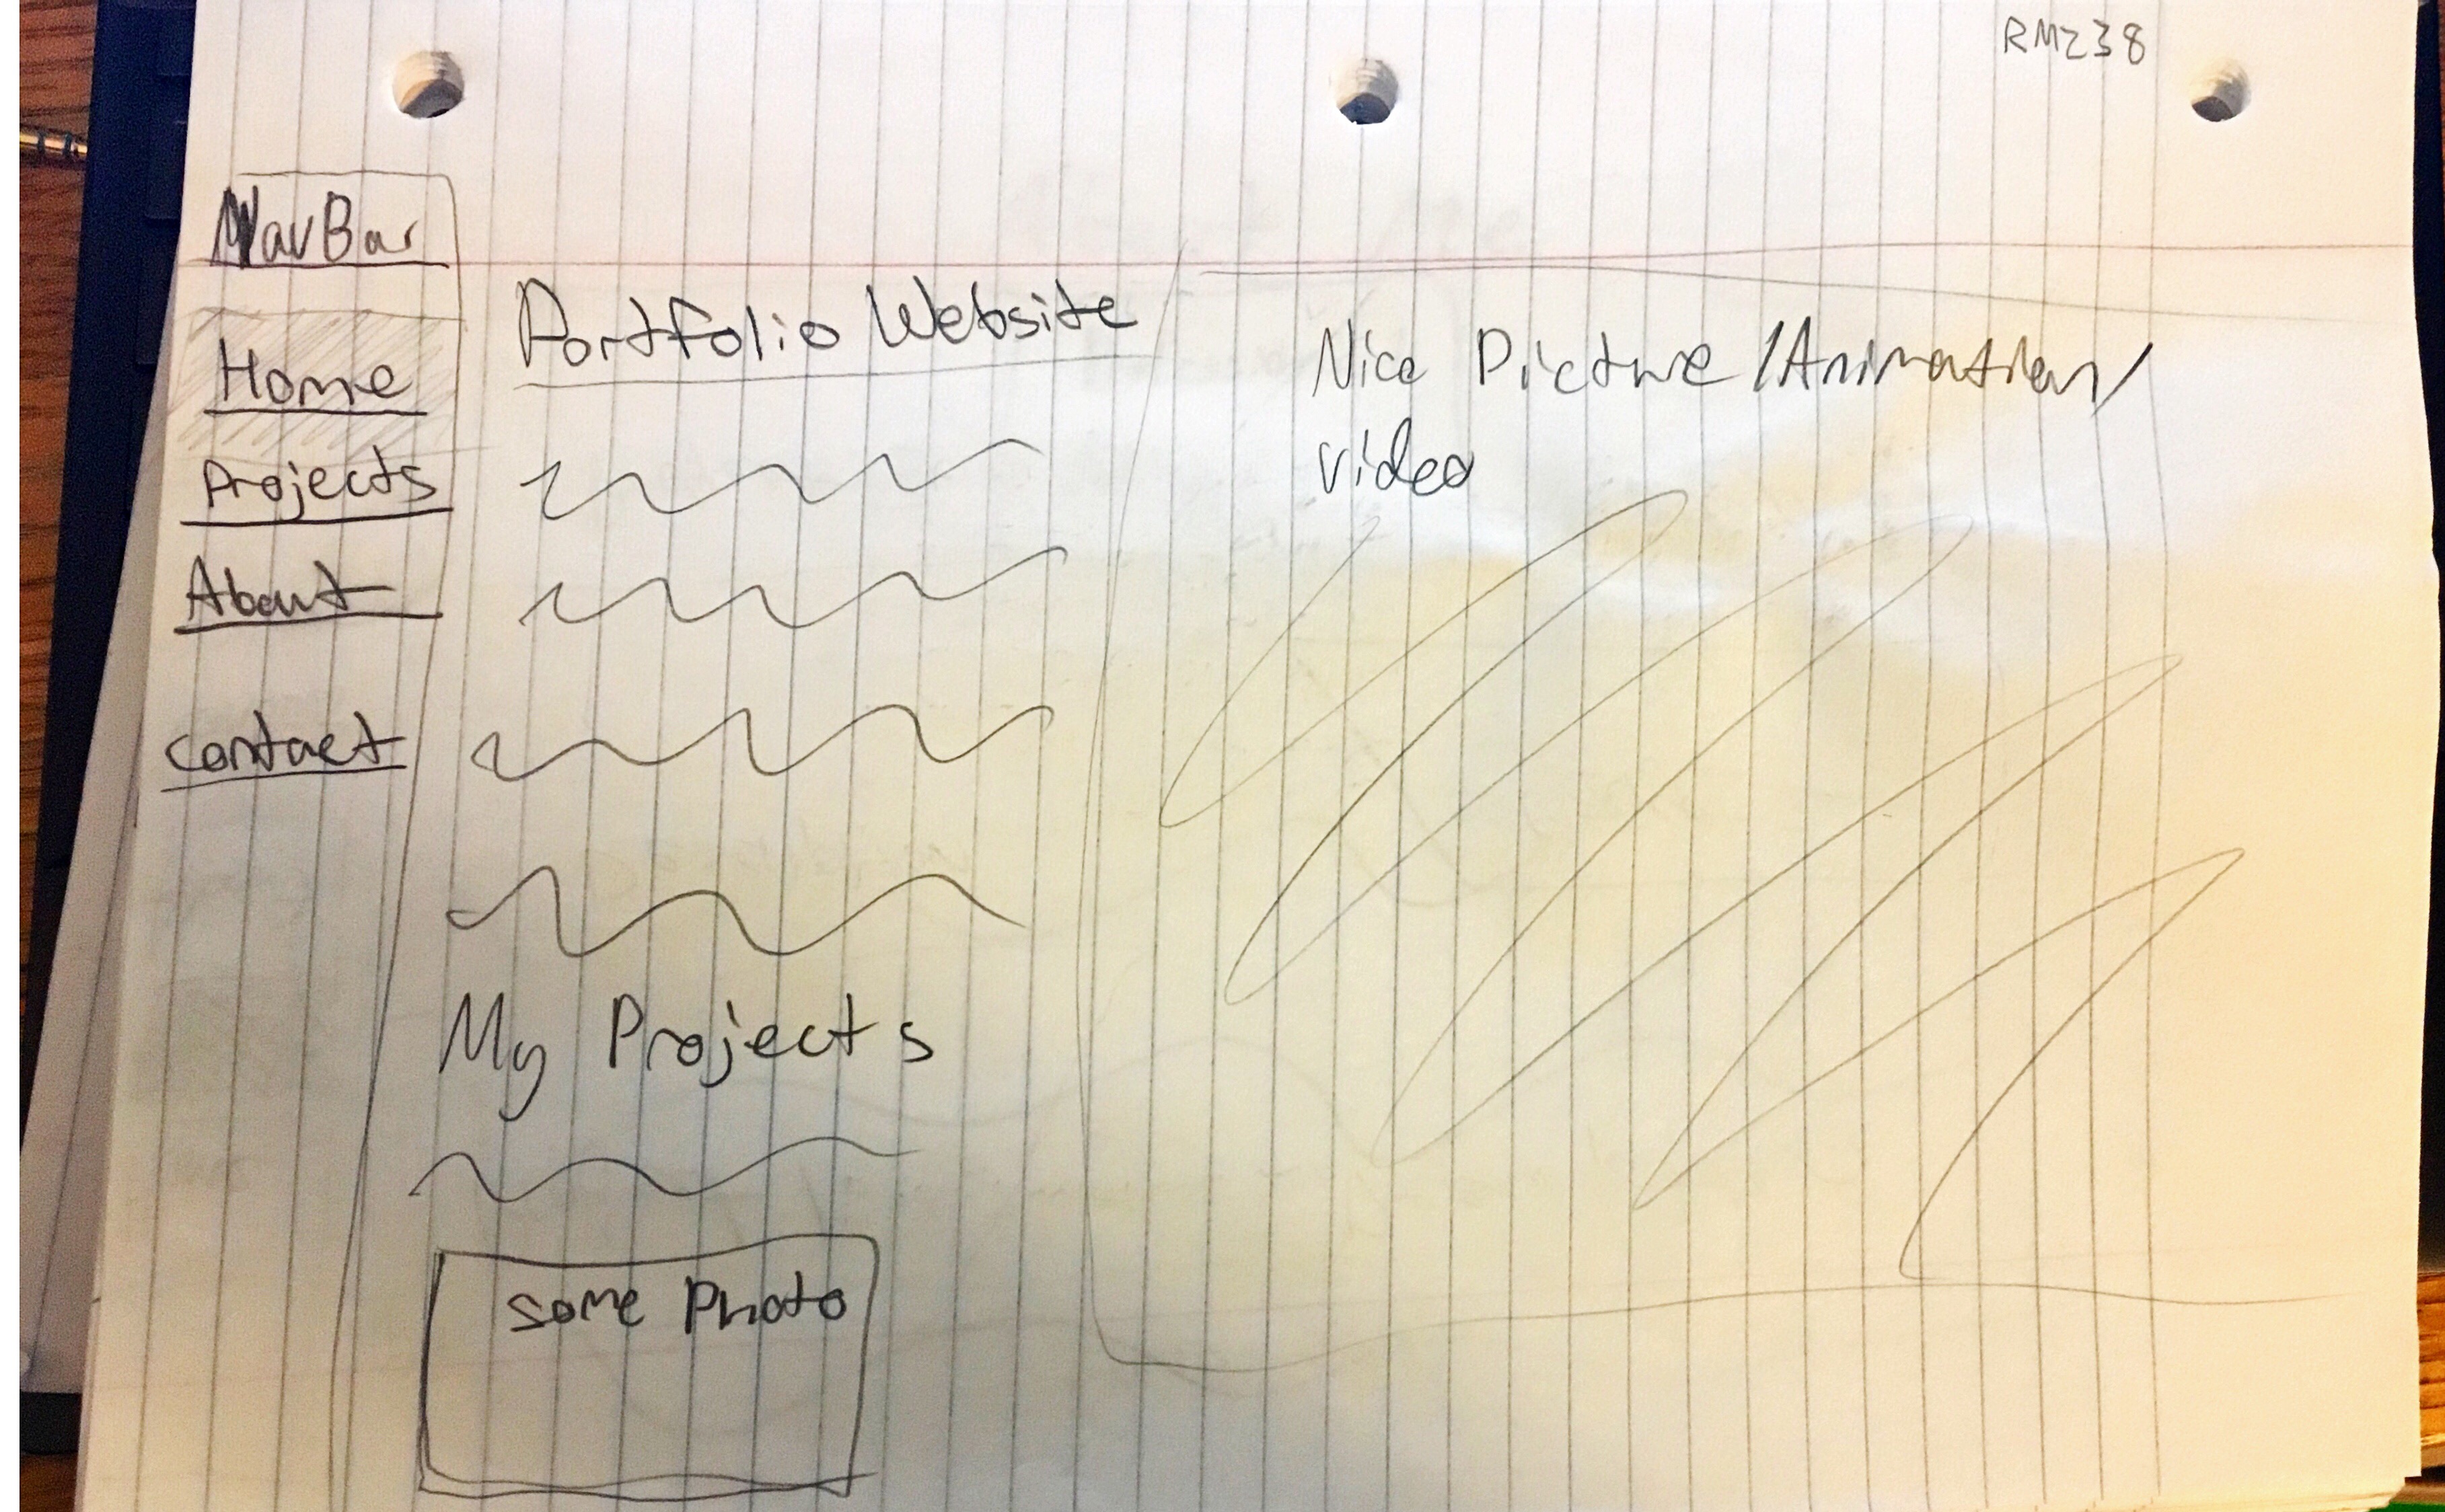 RMZ38
NavBar
Home
Projects
About
contact
Portfolio Website
My Projects
some Photo
Nice Picture/Animation/
video